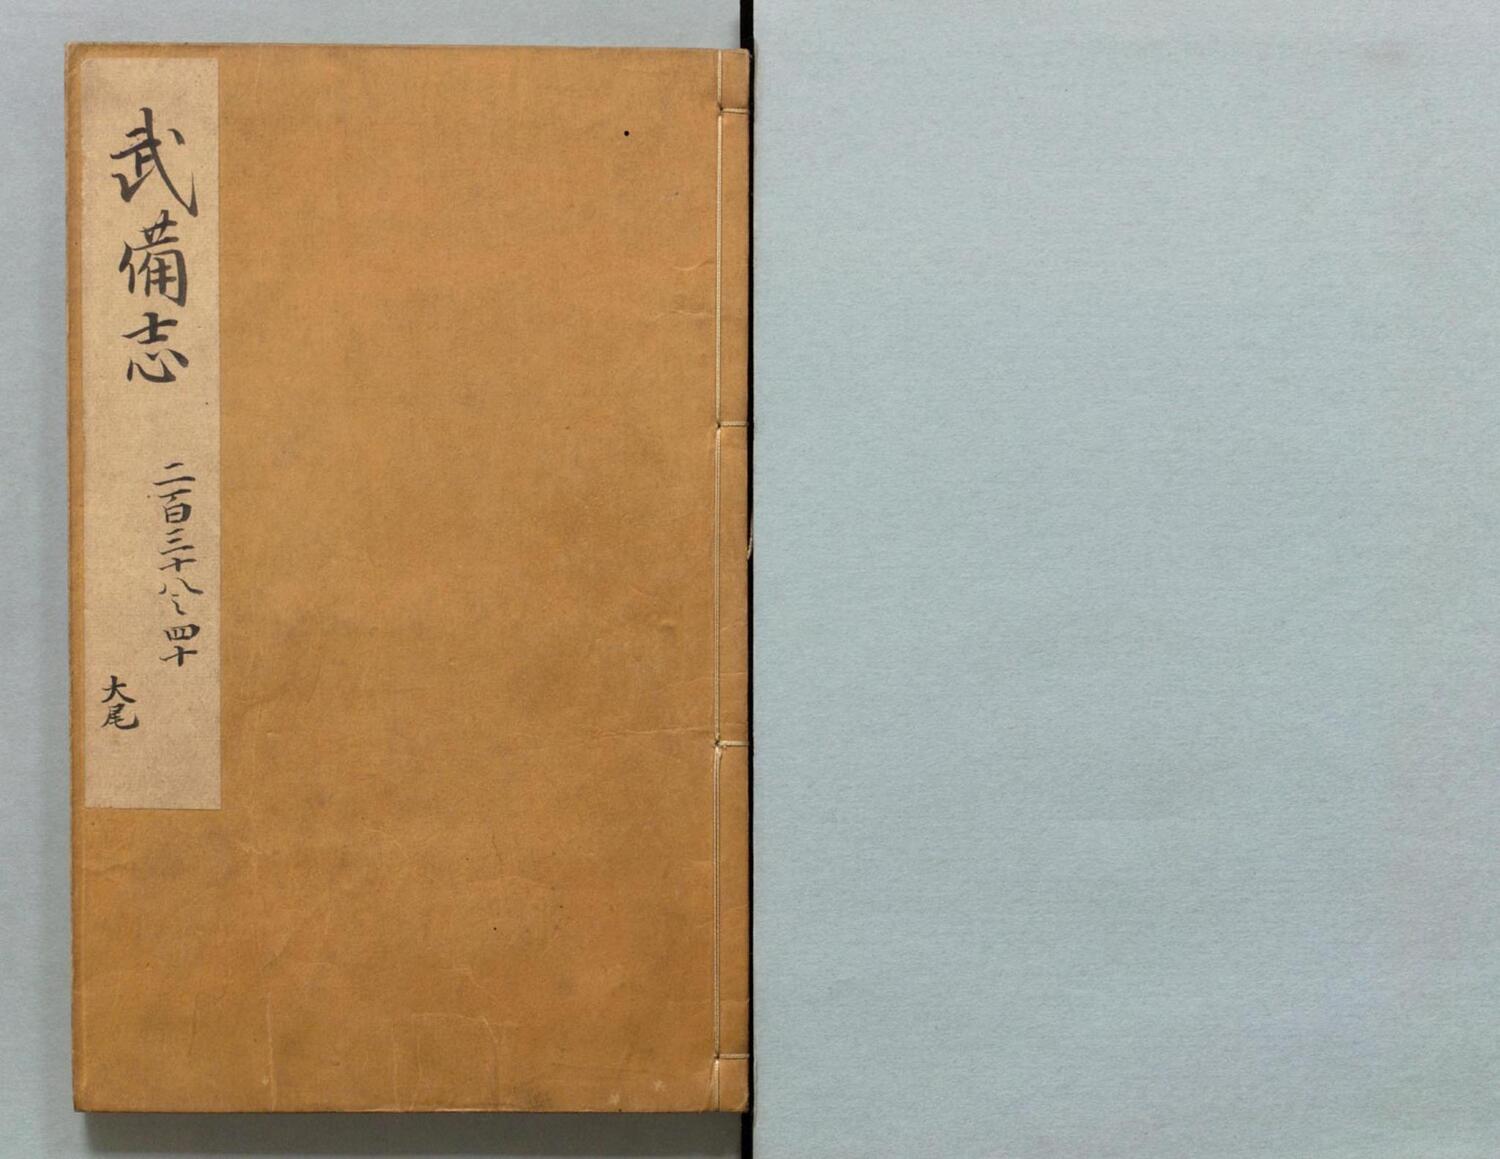 武備志
二百三十八之四十
大尾